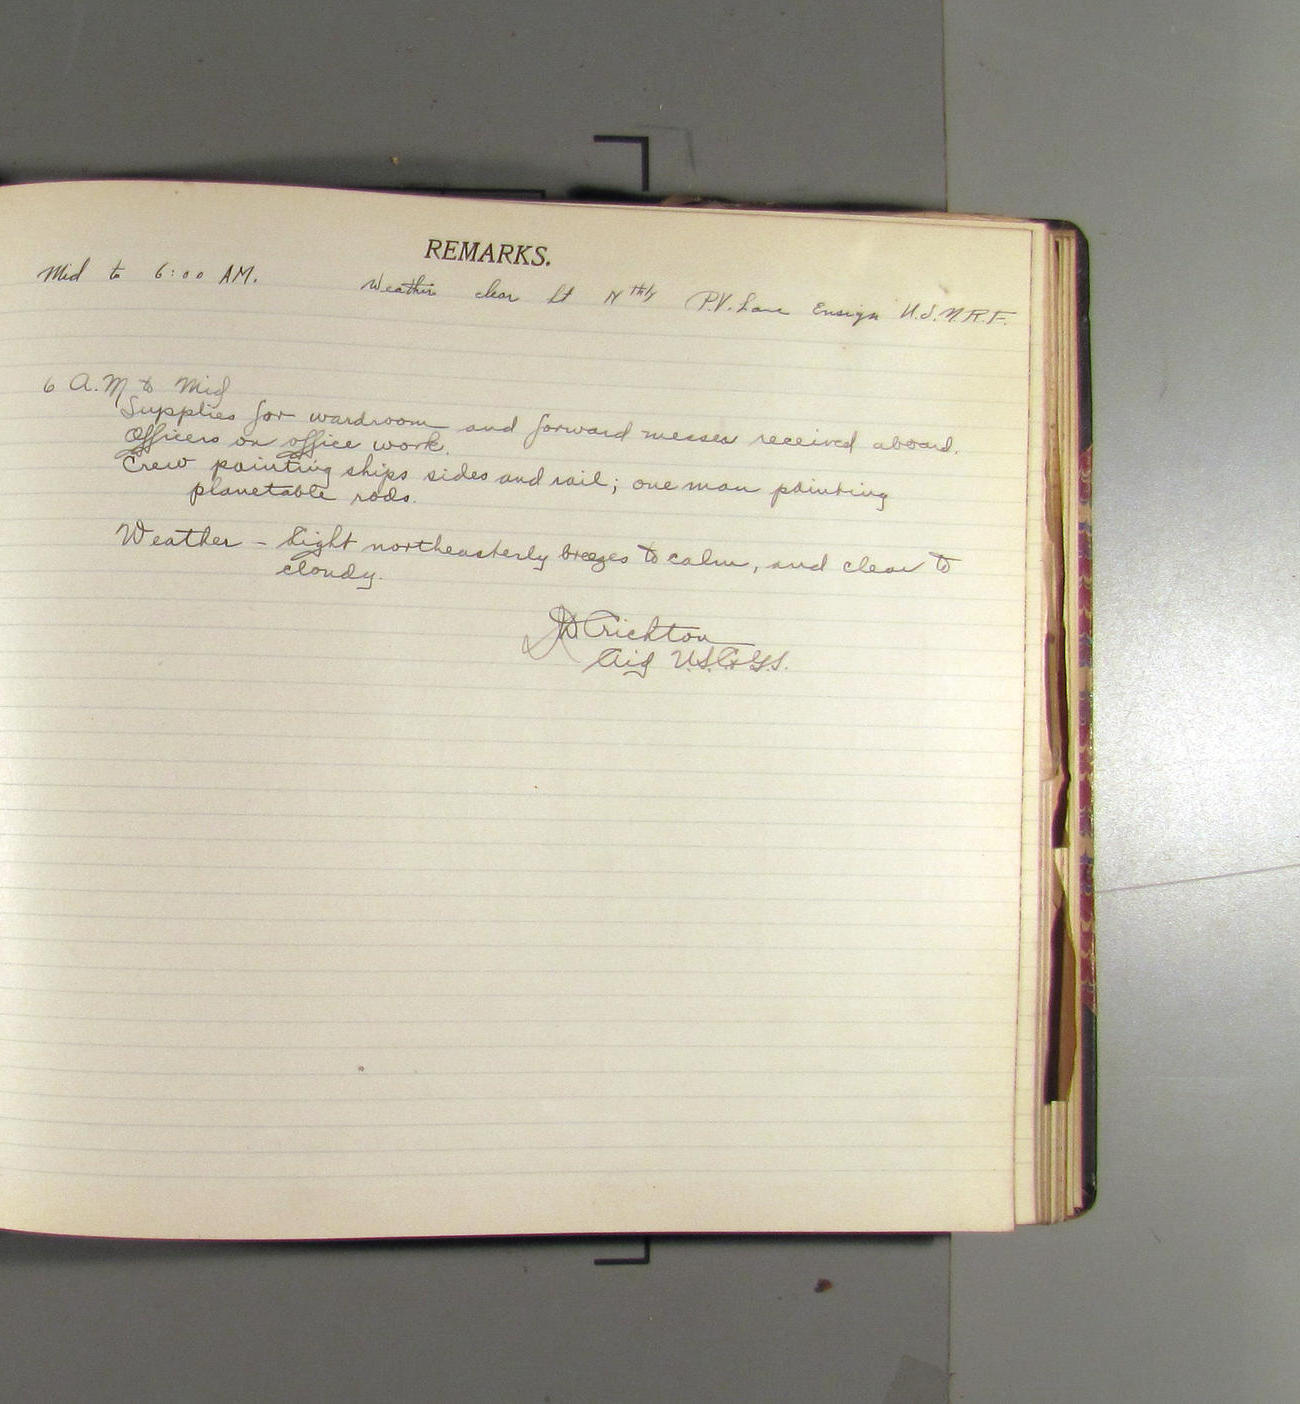 REMARKS.
Mid to 6:00 AM. Weather clear Lt Nthly P.V. Lane Ensign U.S.N.R.F.
6 A.M to Mid
Supplies for wardroom and forward messes received aboard.
Officers on office work.
Crew painting ships sides and rail; one man painting
planetable rods.
Weather - Light northeasterly breezes to calm, and clear to
cloudy.
Crichton
Aid U.S.C.&G.S.